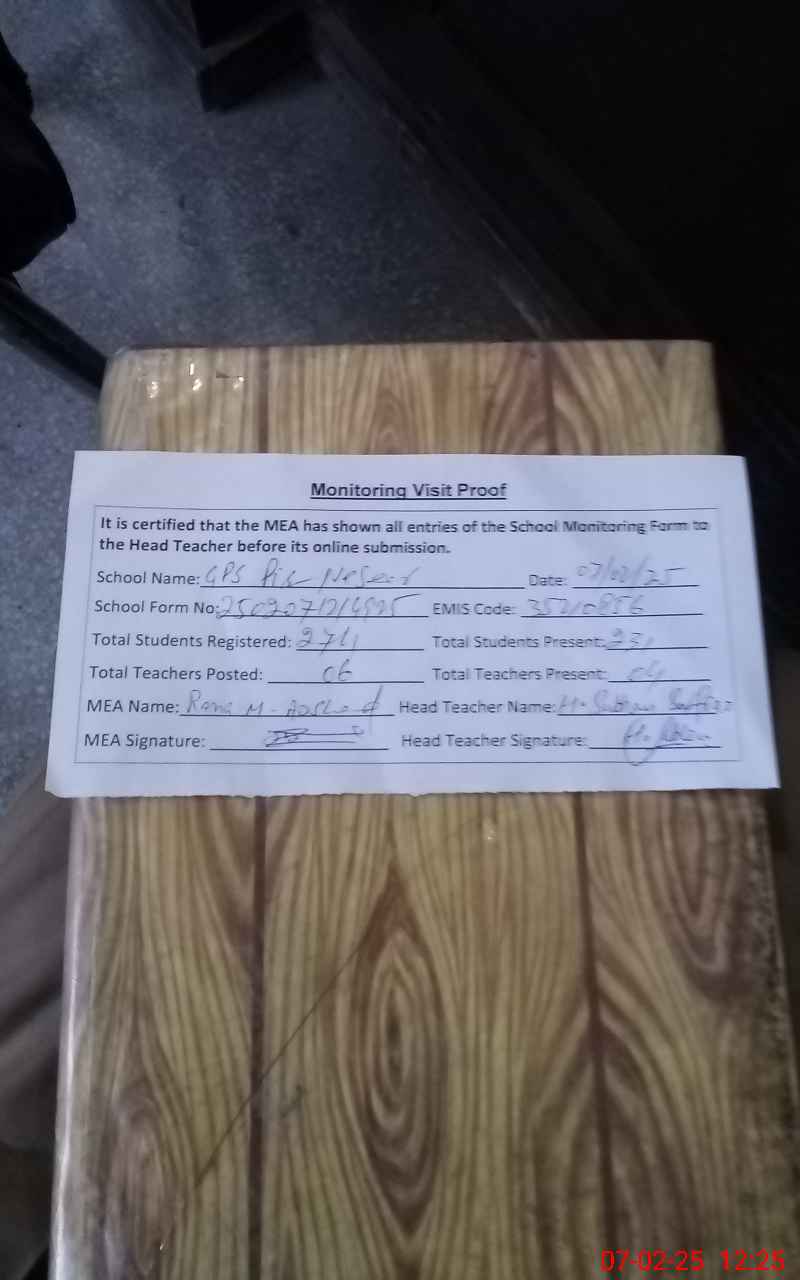 Monitoring Visit Proof
It is certified that the MEA has shown all entries of the School Monitoring Form to
the Head Teacher before its online submission.
School Name: GPS Date: 07/02/25
School Form No: EMIS Code: 35210856
Total Students Registered: 274 Total Students Present: 231
Total Teachers Posted: 06 Total Teachers Present: 04
MEA Name: Rana M. Head Teacher Name:
MEA Signature: Head Teacher Signature:
07-02-25 12:25